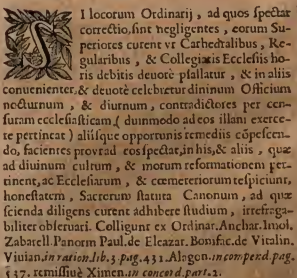 SI locorum Ordinarij, ad quos spectat
correctio, sint negligentes, eorum Su-
periores curent vt Cathedralibus, Re-
gularibus, & Collegiatis Ecclesiis ho-
ris debitis deuotè psallatur, & in aliis
conuenienter, & deuotè celebretur diuinum Officium
nocturnum, & diurnum, contradictores per cen-
suram ecclesiasticam (dummodo ad eos illam exerce-
re pertineat) aliisque opportunis remediis cõpescen-
do, facientes prout ad eos spectat, in his, & aliis, quæ
ad diuinum cultum, & morum reformationem per-
tinent, ac Ecclesiarum, & cœmeteriorum respiciunt,
honestatem, Sacrorum statuta Canonum, ad quæ
scienda diligens curent adhibere studium, irrefraga-
biliter obseruari. Colligunt ex Ordinar. Anchar. Imol.
Zabarell. Panorm. Paul. de Eleazar. Bonifac. de Vitalin.
Viuian. in ration. lib. 3. pag. 431. Alagon. in compend. pag.
537. remissiuè Ximen. in concord. part. 2.